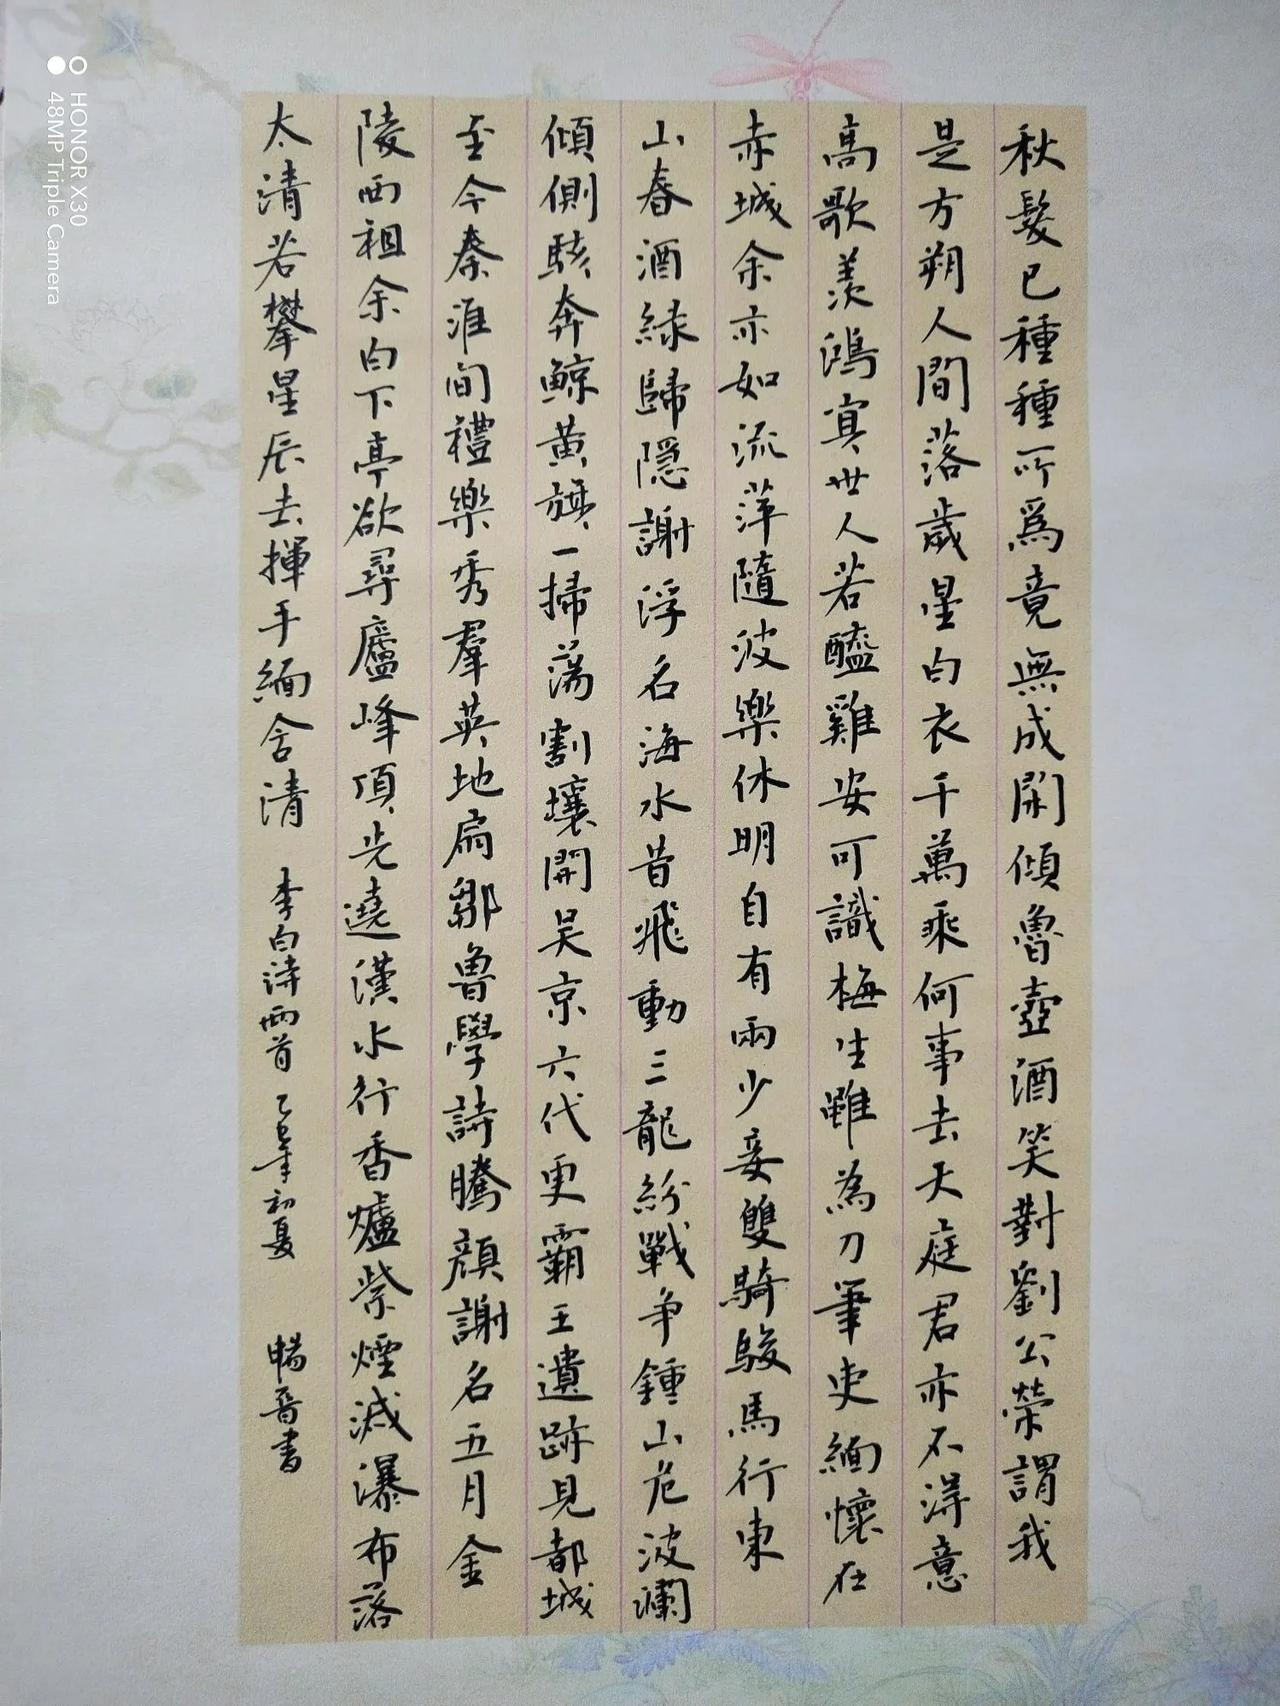 秋髮已種種所爲竟無成閑傾魯壺酒笑對劉公榮謂我
是方朔人間落歲星白衣千萬乘何事去天庭君亦不得意
高歌羨鴻冥世人若醯雞安可識梅生雖為刀筆吏緬懷在
赤城余亦如流萍隨波樂休明自有兩少妾雙騎駿馬行東
山春酒緑歸隱謝浮名海水昔飛動三龍紛戰爭鍾山危波瀾
傾側駭奔鯨黄旗一掃蕩割壤開吴京六代更霸王遺跡見都城
至今秦淮間禮樂秀羣英地扇鄒魯學詩騰顔謝名五月金
陵西祖余白下亭欲尋廬峰頂先遶漢水行香爐紫煙滅瀑布落
太清若攀星辰去揮手緬含清 李白詩兩首 乙巳年初夏 暢晉書
HONOR X30
48MP Triple Camera